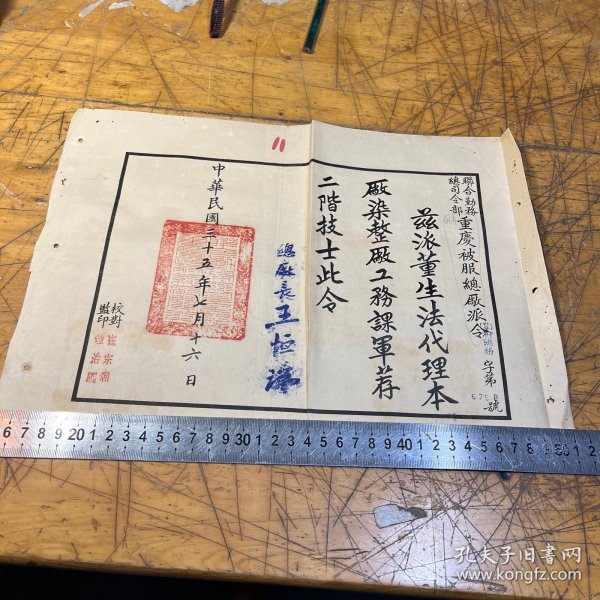 11
聯合勤務
總司令部
重慶被服總廠派令
字第
6758
號
茲派董生法代理本
廠染整廠工務課軍荐
二階技士此令
總廠長
中華民國三十五年七月十六日
校對
監印
6 7 8 9 20 1 2 3 4 5 6 7 8 9 30 1 2 3 4 5 6 7 8 9 40 1 2 3 4 5 6 7 8 9 50 1 2
孔夫子旧书网
www.kongfz.com